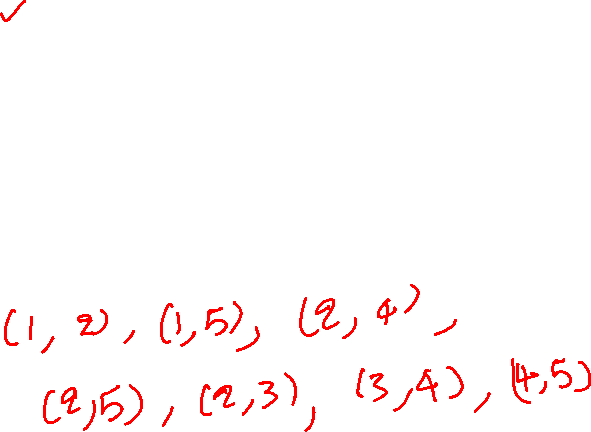 (1, 2), (1,5), (2, 4),
(2,5), (2,3), (3,4), (4,5)